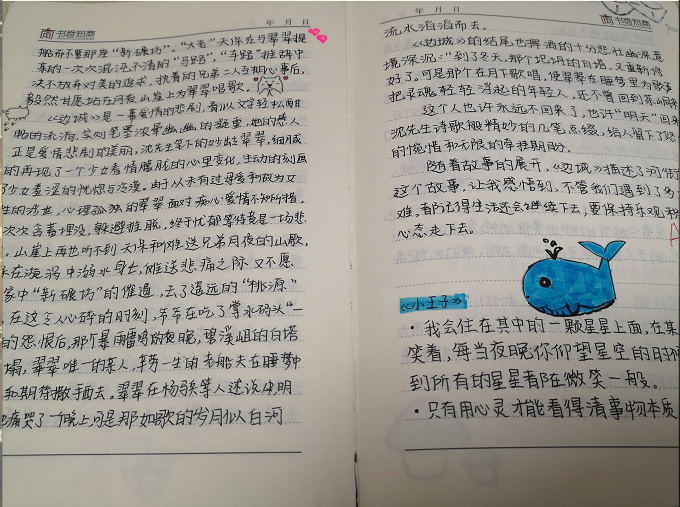 书富如商
年 月 日
挑而不要那座“新碾坊”。“大老”天保在与翠翠提
亲的一次次混沌不清的“马路”，“车路”推辞中
决不放弃对美的追求，执着的兄弟二人互明心事后，
毅然甘愿站在月夜山崖上为翠翠唱歌。
《边城》是一幕爱情的悲剧，看似文字轻松酣
畅的流淌，实则笔墨浓晕幽幽的凝重，她的感人
正是爱情悲剧的美丽，沈先生笔下的妙龄翠翠，细腻
的再现了一个少女看情朦胧的心里变化，生动的刻画
了少女羞涩的恍惚与冷漠。由于从未有过母爱和做为女
性的考世，心理孤独的翠翠面对痴心爱情不知所措，
次次含着埋没，躲避推脱，终于忧郁等待竟是一场悲
，山崖上再也听不到天保和傩送兄弟月夜的山歌，
保在漩涡中溺水身亡，傩送悲痛之际又不愿
家中“新碾坊”的催逼，去了遥远的“桃源”
，在这令人心碎的时刻，爷爷在吃了掌水码头“一
的怨恨后，那个暴雨雷鸣的夜晚，碧溪岨的白塔
塌，翠翠唯一的亲人，辛劳一生的老船夫在睡梦中
和期待撒手西去。翠翠在杨马兵等人述说中，明
痛哭了一个晚上，可是那如歌的岁月似白河
年 月 日
书富如商
流水滔滔而去。
《边城》的结尾也挥洒的十分悲壮幽深意
境深沉：“到了冬天，那个圮坍的白塔，又重新修
好了。可是那个在月下歌唱，使翠翠在睡梦里为歌声
把灵魂轻轻浮起的年轻人，还不曾回到茶峒来
这个人也许永远不回来了，也许“明天”回来
沈先生诗歌般精妙的几笔点缀，给人留下了悠
的惋惜和无限的牵挂期盼。
随着故事的展开，《边城》描述了河街
这个故事，让我感悟到，不管我们遇到了多
难，都记得生活还会继续下去，要保持乐观积
心态走下去。
《小王子》
·我会住在其中的一颗星星上面，在某
笑着，每当夜晚你仰望星空的时候
到所有的星星都在微笑一般。
·只有用心灵才能看得清事物本质